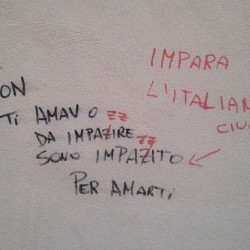 ON
TI AMAVO
zz
DA IMPAZIRE
zz
SONO IMPAZITO
PER AMARTI
IMPARA
L'ITALIAN
CIU